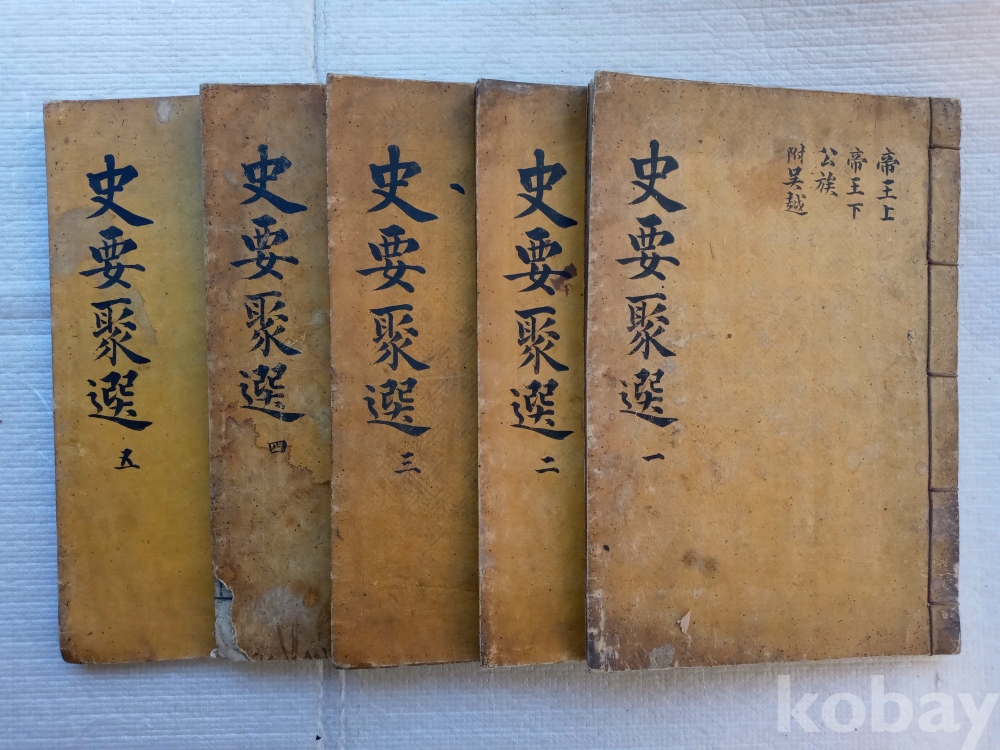 帝王上
帝王下
公族
附吴越
史要聚選
一
史要聚選
二
史要聚選
三
史要聚選
四
史要聚選
五
kobay